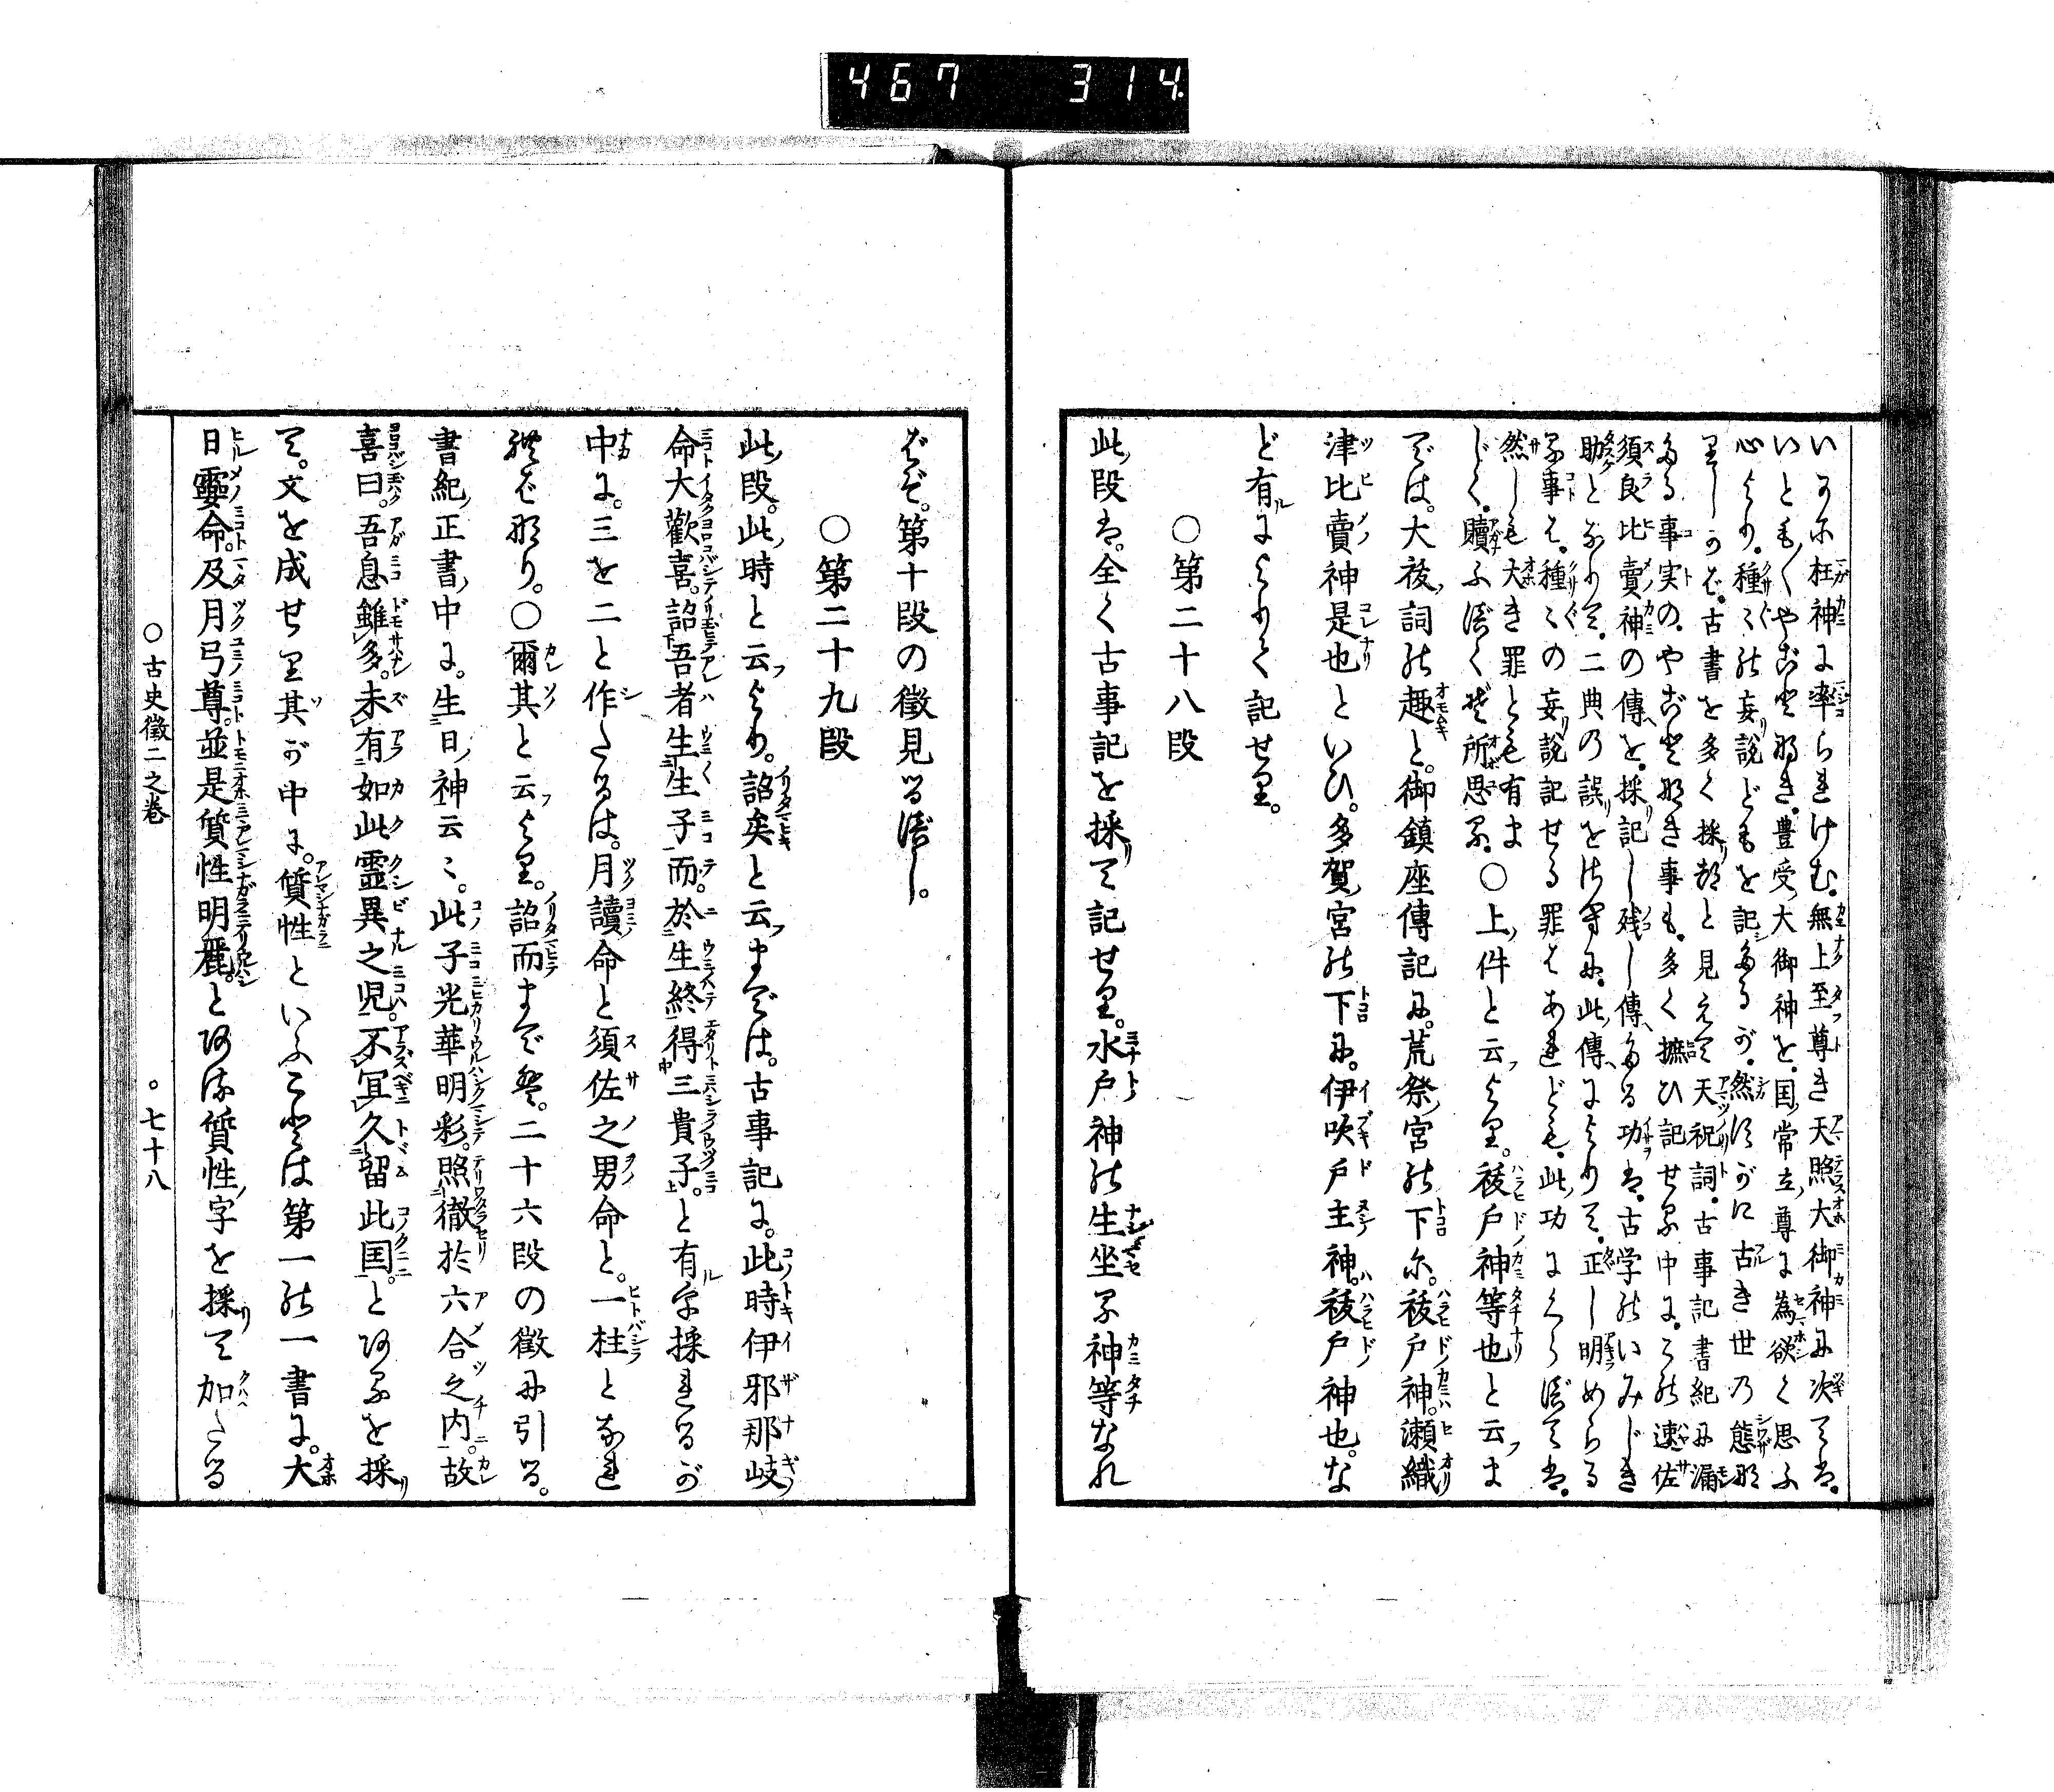 467 314.
いかに枉神に率られけむ。無上至尊き天照大御神に次ては。
いとも〳〵やごとなき。豊受大御神を。国常立尊に為欲く思ふ
心より。種々の妄説どもを記したるが。然すがに古き世の態な
りしかば。古書を多く採都と見えて天祝詞。古事記書紀に漏
たる事実の。やごとなき事も。多く摭ひ記せる中に。この速佐
須良比賣神の傳を。採記し残し傳たる功は。古学のいみじき
助となりて。二典の誤をはじめ。此傳によりて。正し明めらる
る事は。種々の妄説記せる罪はあれども。此功にくらべては。
然しも大き罪とも有ま
じく。贖ふべくぞ所思る。○上件と云より。祓戸神等也と云ま
では。大祓詞の趣と。御鎮座傳記に。荒祭宮の下に。祓戸神。瀬織
津比賣神是也といひ。多賀宮の下に。伊吹戸主神。祓戸神也。な
ど有によりて記せり。
○第二十八段
此段は。全く古事記を採て記せり。水戸神の生坐る神等なれ
ばぞ。第十段の徴見るべし。
○第二十九段
此段。此時と云より。詔矣と云までは。古事記に。此時伊邪那岐
命大歡喜。詔吾者生生子而。於生終得三貴子。と有を採れるが
中に。三を二と作たるは。月讀命と須佐之男命と。一柱となれ
ればなり。○爾其と云より。詔而まで既。二十六段の徴に引る。
書紀正書中に。生日神云々。此子光華明彩。照徹於六合之内。故
喜曰。吾息雖多。未有如此靈異之児。不宜久留此国。とあるを採
て。文を成せり其が中に。質性といふことは第一の一書に。大
日孁命。及月弓尊。並是質性明麗。とある質性字を採て加たる
○古史徴二之巻
○七十八